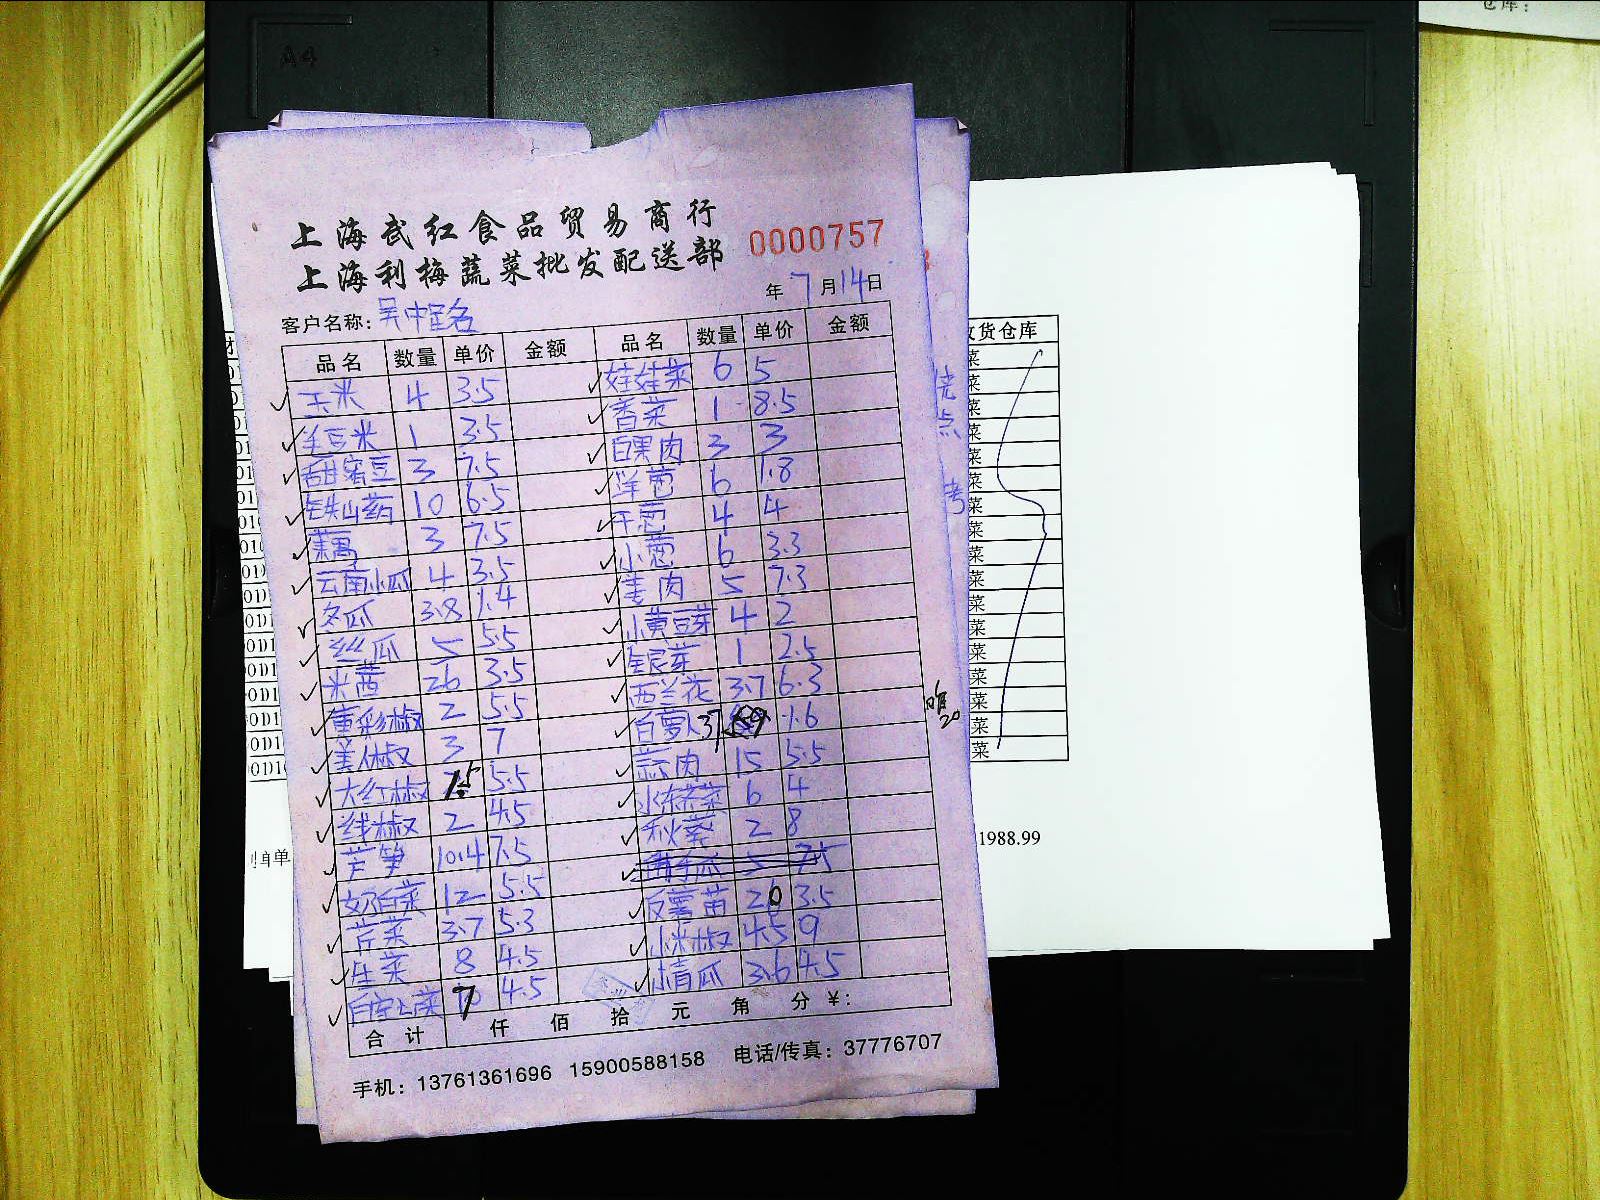 A4
仓库:
上海武红食品贸易商行
上海利梅蔬菜批发配送部
0000757
年 7 月 14 日
客户名称: 吴中
品名 数量 单价 金额 品名 数量 单价 金额
玉米 4 3.5 娃娃菜 6 5
毛豆米 1 3.5 香菜 1 8.5
甜蜜豆 3 7.5 白果肉 3 3
铁山药 10 6.5 洋葱 6 1.8
藕 3 7.5 干葱 4 4
云南小瓜 4 3.5 小葱 6 3.3
冬瓜 3.8 1.4 姜肉 5 7.3
丝瓜 5 5.5 小黄豆芽 4 2
米茜 26 3.5 银芽 1 2.5
黄彩椒 2 5.5 西兰花 3.7 6.3
美人椒 3 7 白萝卜 1.6
大红椒 5.5 蒜肉 15 5.5
线椒 2 4.5 水东芥菜 6 4
芦笋 10.4 7.5 秋葵 2 8
奶白菜 12 5.5
芹菜 3.7 5.3 苗 20 3.5
生菜 8 4.5 小米椒 4.5 9
7 4.5 小青瓜 3.6 4.5
合计 仟 佰 拾 元 角 分 ¥:
手机: 13761361696 15900588158 电话/传真: 37776707
货仓库
菜
菜
菜
菜
菜
菜
菜
菜
菜
菜
菜
菜
菜
菜
菜
菜
菜
1988.99
单